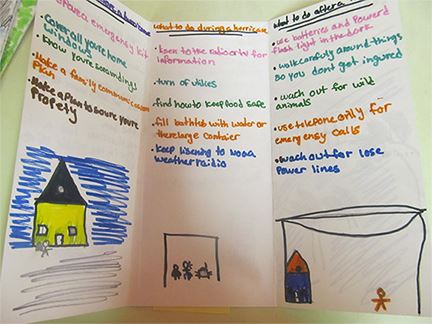 prepara emergency kit
Cover all you're home
windows
Know you're souroundings
Make a family communication
plan
Make a plan to soure you're
Propety
what to do during a herricane
listen to the radio or tv for
information
turn of utilies
find how to keep food safe
fill bathtubs with water or
there large contaier
keep listening to noaa
weather raidio
what to do after a
use batteries and Powerd
flash light in the dark
walk carefuly around things
so you dont get ingured
wach out for wild
animals
use telepone only for
emergensy calls
wach out for lose
Power lines